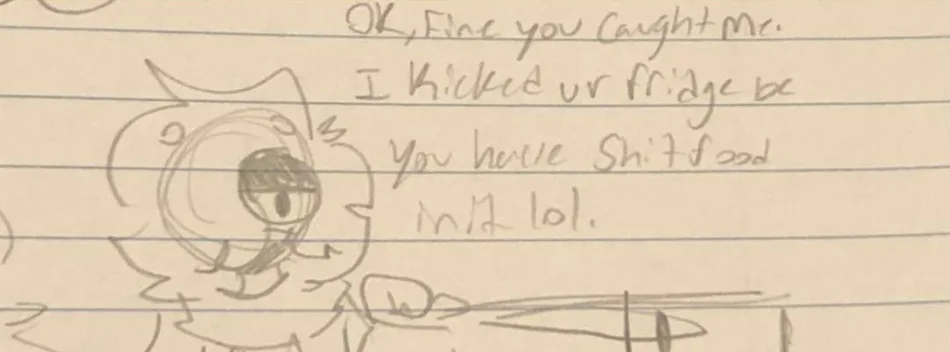 OK, Fine you caught me.
I kicked ur fridge bc
you have shit food
in it lol.